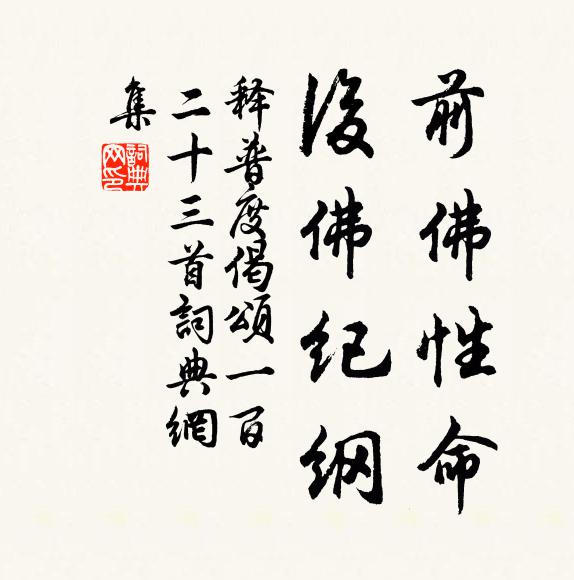 前佛性命
後佛纪纲
释普度偈頌一百
二十三首詞典網
集
詞典網印